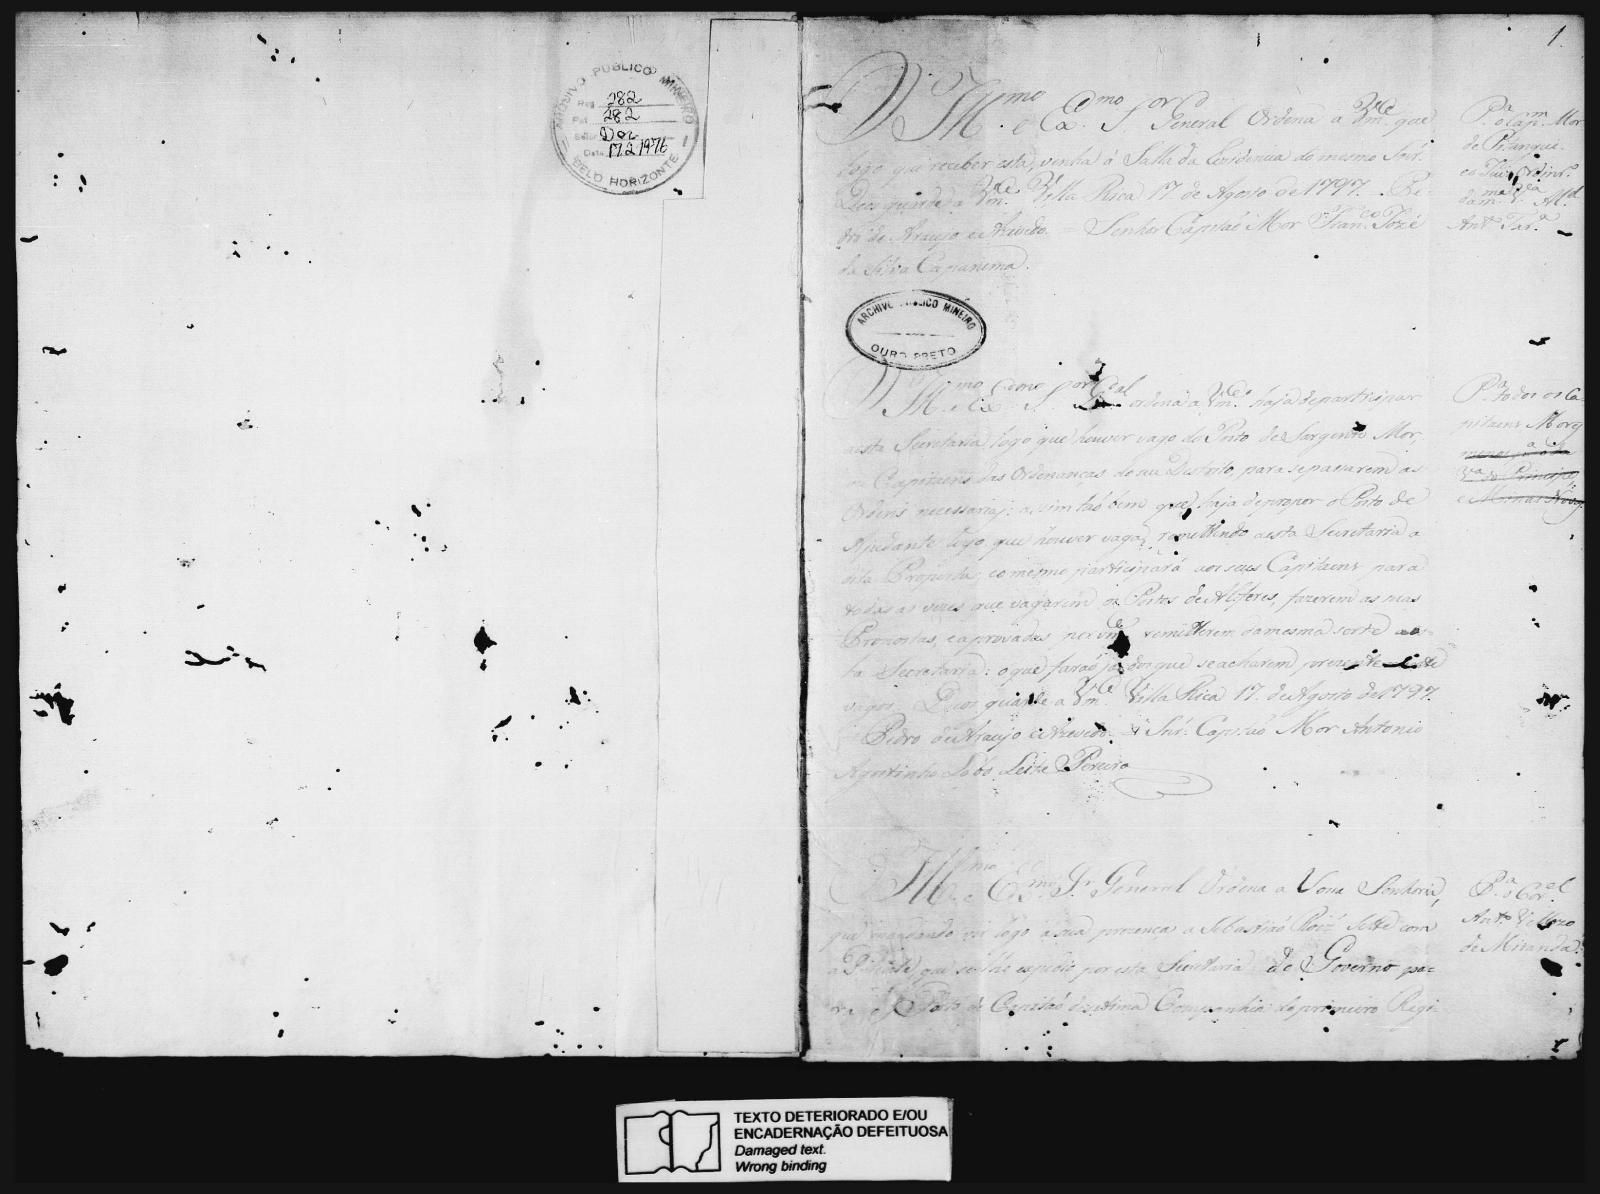 ARCHIVO PUBLICO MINEIRO
Reg 282
Pat 282
Data 17 2 1976
BELO HORIZONTE
1.
O Illmo. e Exmo. Sor. General Ordena a Vmce. que
logo que receber esta, venha á Salla da Rezidencia do mesmo Snr.
Deos guarde a Vmce. Villa Rica 17 de Agosto de 1797. Pe-
dro de Araujo e Azevedo. = Senhor Capitaõ Mor Franco. Jozé
da Silva Capanema.
Pa. o Capm. Mor
de Pitangue.
Anto.
ARCHIVO PUBLICO MINEIRO
OURO PRETO
O Illmo. e Exmo. Sor. Gal. ordena a Vmce. haja departicipar
aesta Secretaria logo que houver vago do Posto de Sargento Mor,
ou Capitaens das Ordenanças do seu Distrito, para sepassarem as
Ordens necessarias: assim taõ bem que haja depropor o Posto de
Ajudante logo que houver vaga, remettendo aesta Secretaria a
dita Proposta; eomesmo participará aos seus Capitaens para
todas as vezes que vagarem os Postos de Alferes, fazerem as suas
Propostas, eaprovadas por Vmce. remetterem damesma sorte aes-
ta Secretaria: oque faraõ ja dos que seacharem prezentemente
vagos. Deos guarde a Vmce. Villa Rica 17. de Agosto de 1797.
Pedro de Araujo e Azevedo. = Snr. Capitaõ Mor Antonio
Agostinho Lobo Leite Pereira
Pa. todos os Ca
pitaens Mores
menos pa. o da
Va. do Principe,
e Minas Novas
O Illmo. e Exmo. Sr. General Ordena a Vossa Senhoria,
que mandando vir logo á sua prezença a Sebastiaõ Roiz Sette com
a Patente, que selhe expedio por esta Secretaria do Governo pa-
ra o Posto de Capitaõ da setima Companhia do primeiro Regi-
Pa. o Corel.
Anto. Vellozo
de Miranda.
TEXTO DETERIORADO E/OU
ENCADERNAÇÃO DEFEITUOSA
Damaged text.
Wrong binding